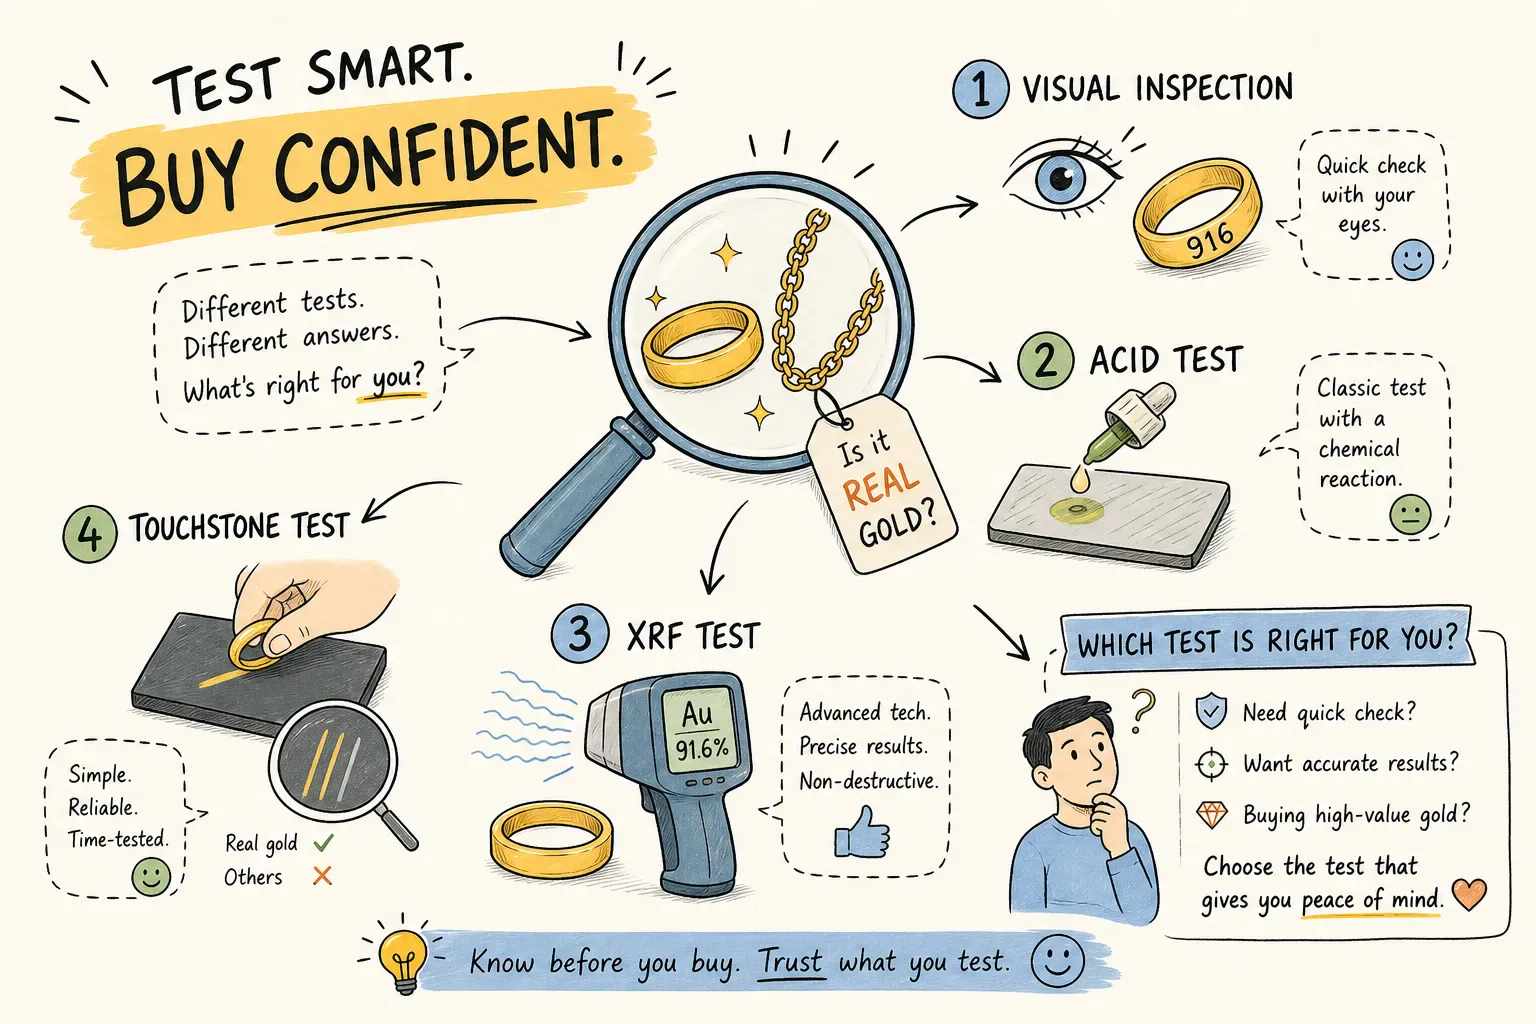 TEST SMART.
BUY CONFIDENT.
Different tests.
Different answers.
What's right for you?
Is it
REAL
GOLD?
1 VISUAL INSPECTION
916
Quick check
with your
eyes.
2 ACID TEST
Classic test
with a
chemical
reaction.
3 XRF TEST
Au
91.6%
Advanced tech.
Precise results.
Non-destructive.
4 TOUCHSTONE TEST
Simple.
Reliable.
Time-tested.
Real gold ✓
Others ✗
WHICH TEST IS RIGHT FOR YOU?
?
Need quick check?
Want accurate results?
Buying high-value gold?
Choose the test that
gives you peace of mind.
Know before you buy. Trust what you test.